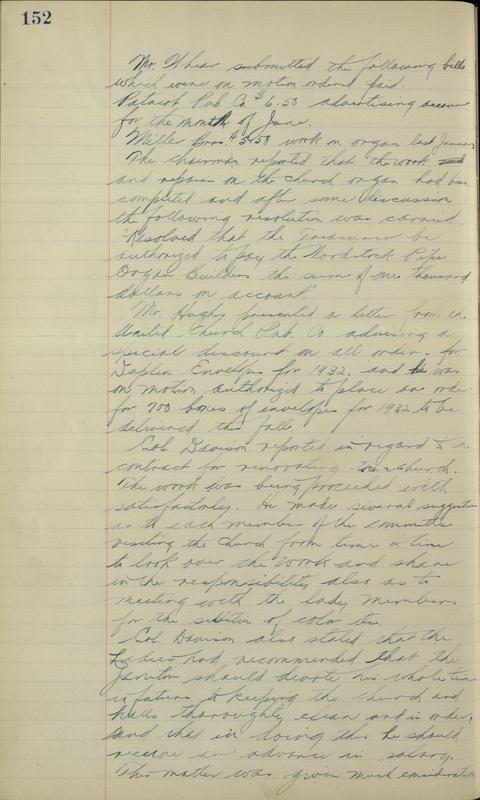 152
Mr. submitted the following bills
which were on motion ordered paid.
Patriot Pub. Co $6.50 advertising account
for the month of June.
Miller Bros. work on organ last January
The Chairman reported that the work
and repairs on the church organ had been
completed and after some discussion
the following resolution was carried
"Resolved that the Treasurer be
authorized to pay the Woodstock Pipe
Organ Builders the sum of one thousand
dollars on account."
Mr. Hughes presented a letter from the
United Church Pub. Co advising a
special discount on all orders for
Duplex Envelopes for 1932, and he was
on motion authorized to place an order
for 700 boxes of envelopes for 1932 to be
delivered this fall.
Col. Davison reported in regard to the
contract for renovating the church.
The work was being proceeded with
satisfactorily. He made several suggestions
as to each member of the committee
visiting the Church from time to time
to look over the work and share
in the responsibility also as to
meeting with the lady members
for the selection of color etc.
Col. Davison also stated that the
Ladies had recommended that the
Janitor should devote his whole time
in future to keeping the church and
halls thoroughly clean and in order,
and that in doing this he should
receive an advance in salary.
This matter was given much consideration